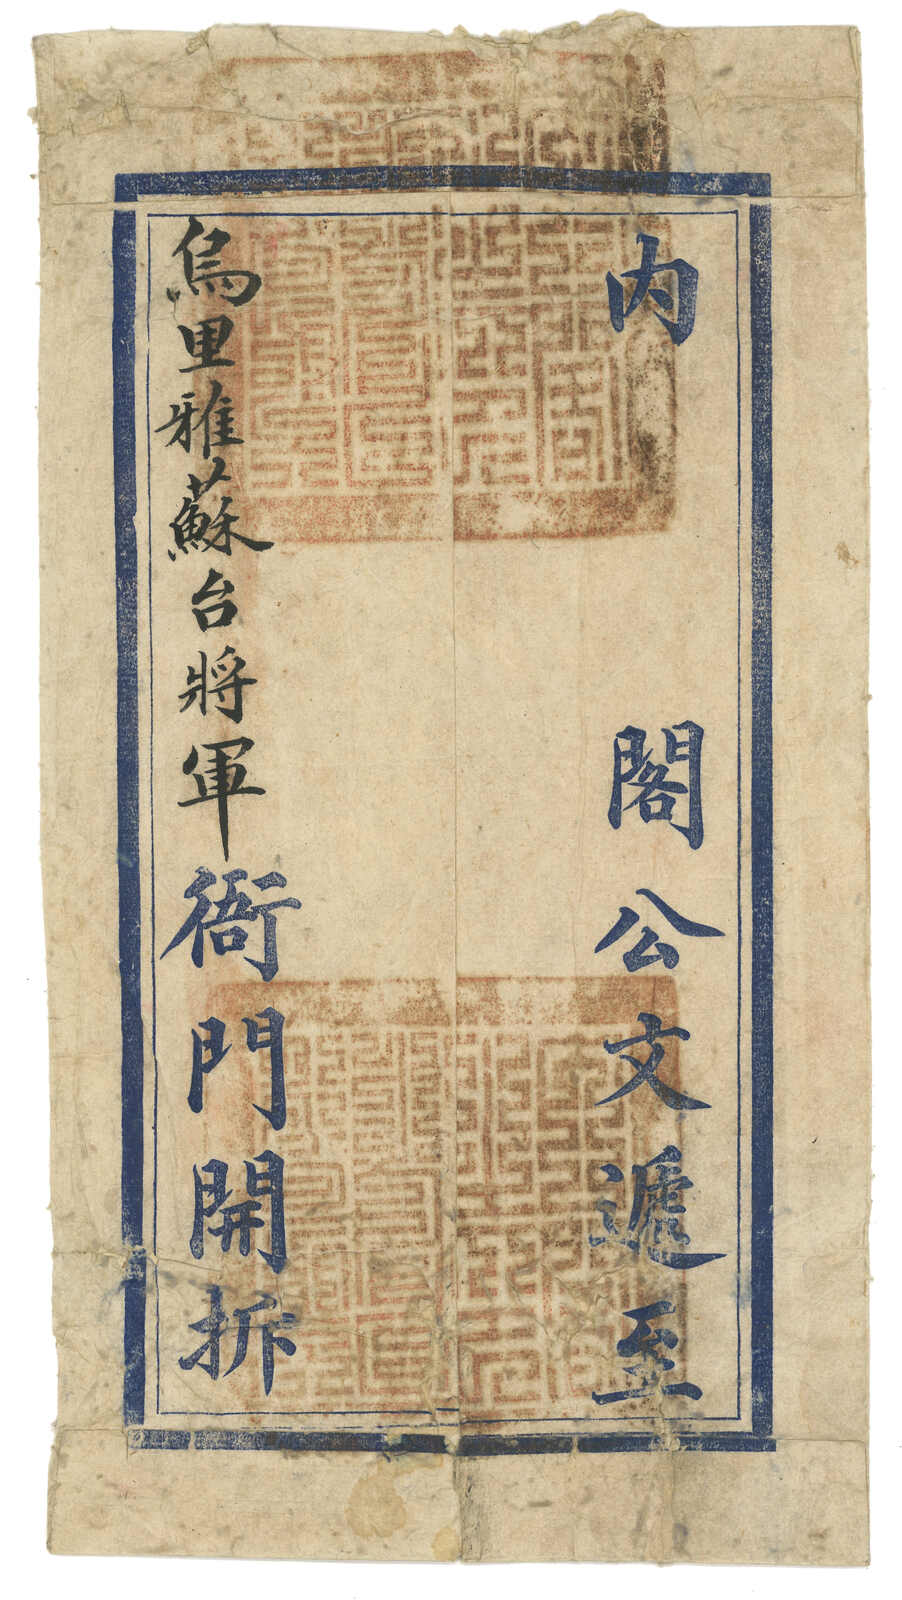 內閣公文遞至
烏里雅蘇台將軍衙門開拆